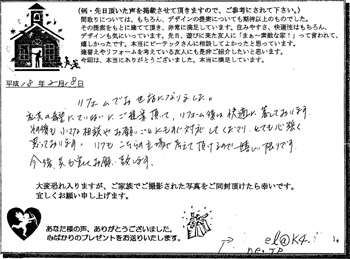 (例・先日頂いた声を掲載させて頂きますので、ご参考にされて下さい。)
間取りについては、もちろん、デザインの提案についても期待以上のものでした。
その提案をもとに建てて頂き、非常に満足しています。住みやすさ、快適性はもちろん、
デザインも気にいっています。先日、遊びに来た友人に「まぁ~素敵な家!」って言われて、
嬉しかったです。本当にビーテックさんに相談してよかったと思っています。
建替えやリフォームを考えている友人にも是非ご紹介したいと思います。
今回は、本当にありがとうございました。本当に満足しています。
平成18年2月18日
リフォームでお世話になりました。
私共の希望に
ご提案頂いて、リフォーム後は快適に暮しております。
小さな相談やお願いごとにも
対応してくださり、とても心強く
思っております。いつもこちらの立場で考えて頂けるので嬉しい限りです。
今後共宜しくお願い致します。
大変恐れ入りますが、ご家族でご撮影された写真をご同封頂けたら幸いです。
宜しくお願い申し上げます。
あなた様の声、ありがとうございました。
心ばかりのプレゼントをお送りいたします。